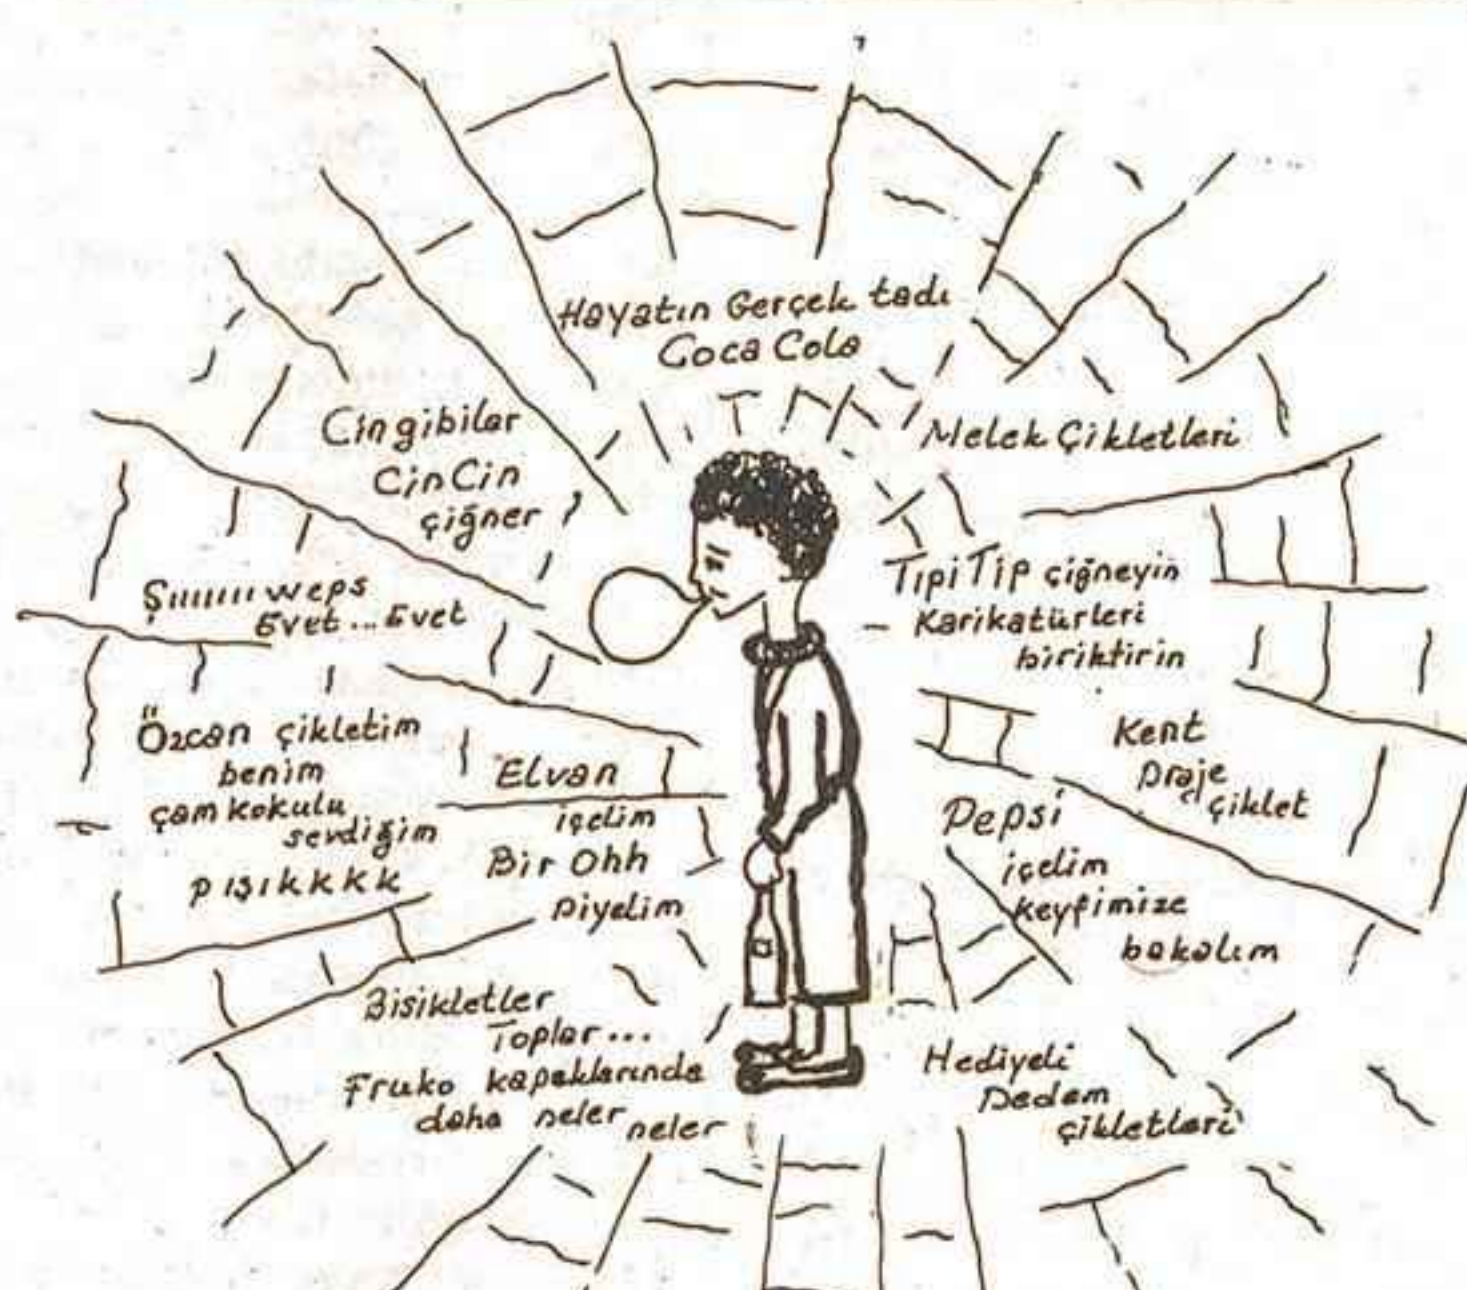 Hayatın Gerçek tadı
Coca Cola
Cin gibiler
Cin Cin
çiğner
Melek Çikletleri
Şııııııı weps
Evet... Evet
TipiTip çiğneyin
Karikatürleri
biriktirin
Özcan çikletim
benim
çam kokulu
sevdiğim
pışıkkkk
Elvan
içelim
Bir Ohh
Diyelim
Kent
Draje
çiklet
Pepsi
içelim
keyfimize
bakalım
Bisikletler
Toplar...
Fruko kapaklarında
daha neler neler
Hediyeli
Dedem
çikletleri